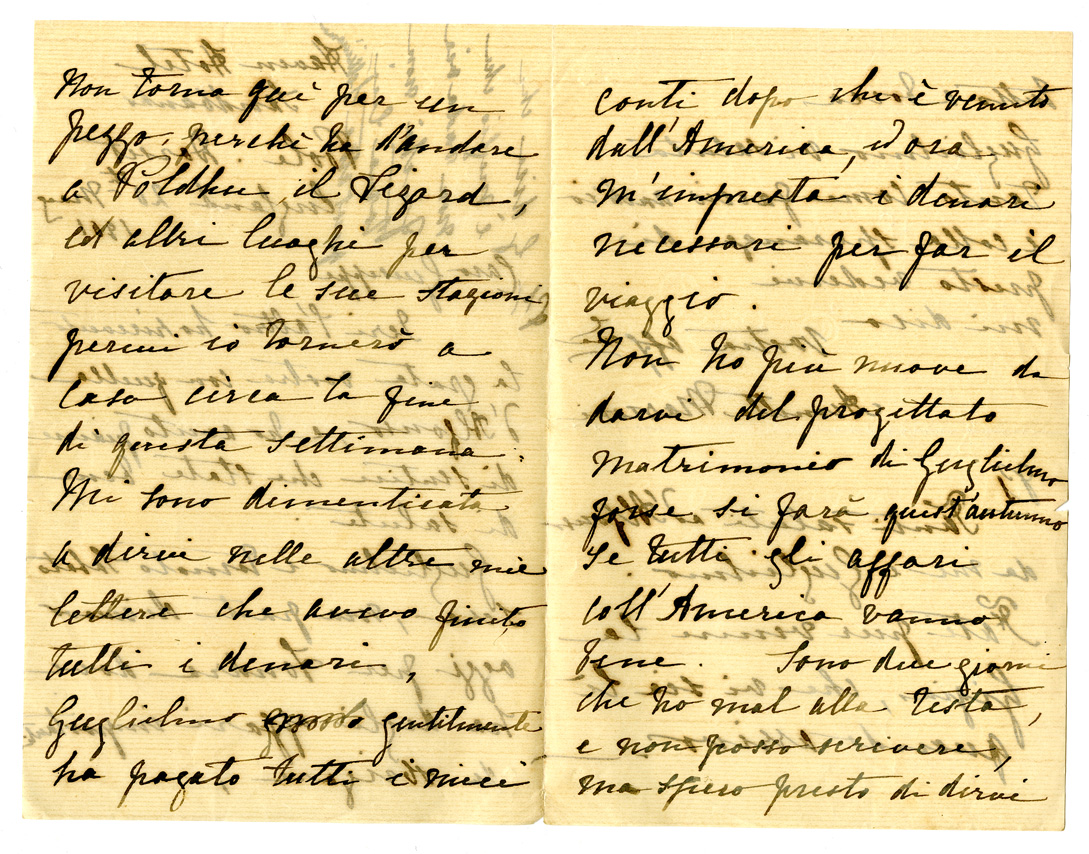 Non torna quì per un
pezzo, perchè ha d'andare
a Poldhu, il Lizard,
ed altri luoghi per
visitare le sue stazioni
percui io tornerò a
casa circa la fine
di questa settimana.
Mi sono dimenticata
a dirvi nelle altre mie
lettere che avevo finito
tutti i denari,
Guglielmo gentilmente
ha pagato tutti i miei
conti dopo che è venuto
dall'America, ed ora
m'impresta i denari
necessari per far il
viaggio.
Non ho più nuove da
darvi del progettato
matrimonio di Guglielmo
forse si farà quest'autunno
se tutti gli affari
coll'America vanno
bene. Sono due giorni
che ho mal alla testa,
e non posso scrivere,
ma spero presto di dirvi